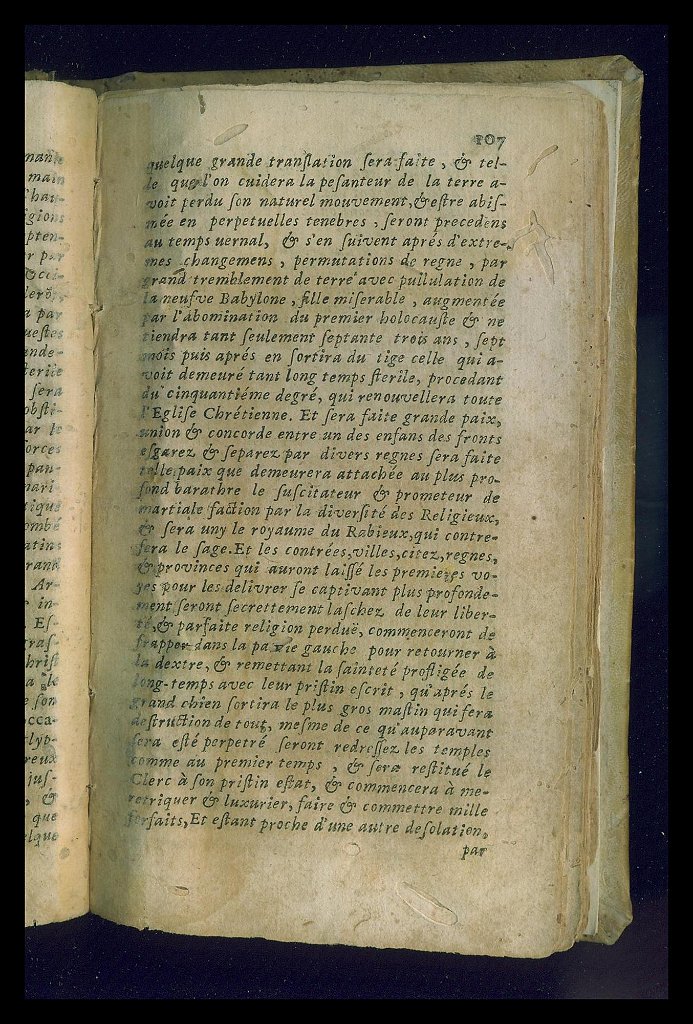 nant
main
gions
pten-
r par
Occi-
a par
uestes
nde-
sera
obsti-
ar le
orces
pan-
nari-
tique
ombé
atins
rand
Ar-
in-
Es-
gras-
hrist
a le
son
occa-
lyp-
reux
jus-
, &
que
elque
107
quelque grande tranſlation ſera faite, & tel-
le que l'on cuidera la peſanteur de la terre a-
voit perdu ſon naturel mouvement, & eſtre abiſ-
mée en perpetuelles tenebres, ſeront precedens
au temps uernal, & s'en ſuivent aprés d'extre-
mes changemens, permutations de regne, par
grand tremblement de terre avec pullulation de
la neufve Babylone, fille miſerable, augmentée
par l'abomination du premier holocauſte & ne
tiendra tant ſeulement ſeptante trois ans, ſept
mois puis aprés en ſortira du tige celle qui a-
voit demeuré tant long temps ſterile, procedant
du cinquantiéme degré, qui renouvellera toute
l'Egliſe Chrétienne. Et ſera faite grande paix,
union & concorde entre un des enfans des fronts
eſgarez & ſeparez par divers regnes ſera faite
telle paix que demeurera attachée au plus pro-
fond barathre le ſuſcitateur & prometeur de
martiale faction par la diverſité des Religieux,
& ſera uny le royaume du Rabieux, qui contre-
fera le ſage. Et les contrées, villes, citez, regnes,
& provinces qui auront laiſſé les premieres vo-
yes pour les delivrer ſe captivant plus profonde-
ment ſeront ſecrettement laſchez de leur liber-
té, & parfaite religion perduë, commenceront de
frapper dans la partie gauche pour retourner à
la dextre, & remettant la ſainteté profligée de
long-temps avec leur priſtin eſcrit, qu'aprés le
grand chien ſortira le plus gros maſtin qui fera
deſtruction de tout, meſme de ce qu'auparavant
ſera eſté perpetré ſeront redreſſez les temples
comme au premier temps, & ſera reſtitué le
Clerc à ſon priſtin eſtat, & commencera à me-
retriquer & luxurier, faire & commettre mille
forfaits, Et eſtant proche d'une autre deſolation,
par